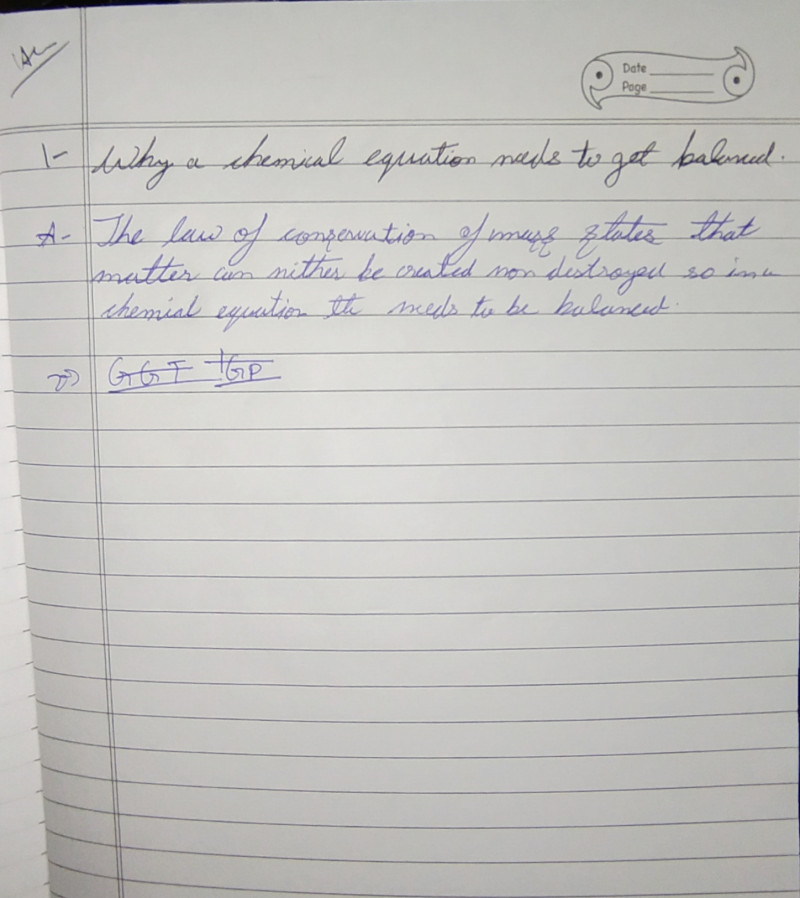 Date
Page
1- Why a chemical equation needs to get balanced.
A- The law of conservation of mass states that
matter can nither be created non destroyed so in a
chemical equation th needs to be balanced.